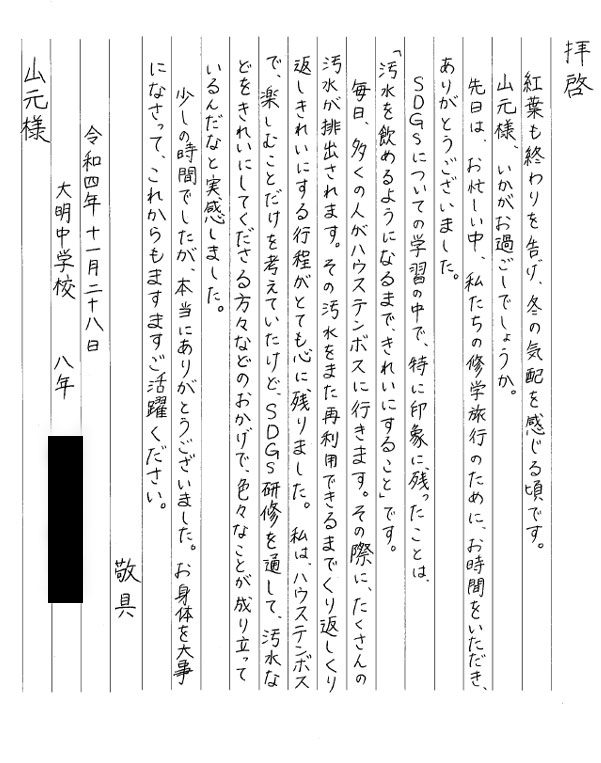 拝啓
紅葉も終わりを告げ、冬の気配を感じる頃です。
山元様、いかがお過ごしでしょうか。
先日は、お忙しい中、私たちの修学旅行のために、お時間をいただき、
ありがとうございました。
SDGsについての学習の中で、特に印象に残ったことは、
「汚水を飲めるようになるまで、きれいにすること」です。
毎日、多くの人がハウステンボスに行きます。その際に、たくさんの
汚水が排出されます。その汚水をまた再利用できるまでくり返しくり
返しきれいにする行程がとても心に残りました。私は、ハウステンボス
で、楽しむことだけを考えていたけど、SDGs研修を通して、汚水な
どをきれいにしてくださる方々などのおかげで、色々なことが成り立って
いるんだなと実感しました。
少しの時間でしたが、本当にありがとうございました。お身体を大事
になさって、これからもますますご活躍ください。
敬具
令和四年十一月二十八日
大明中学校 八年
山元様